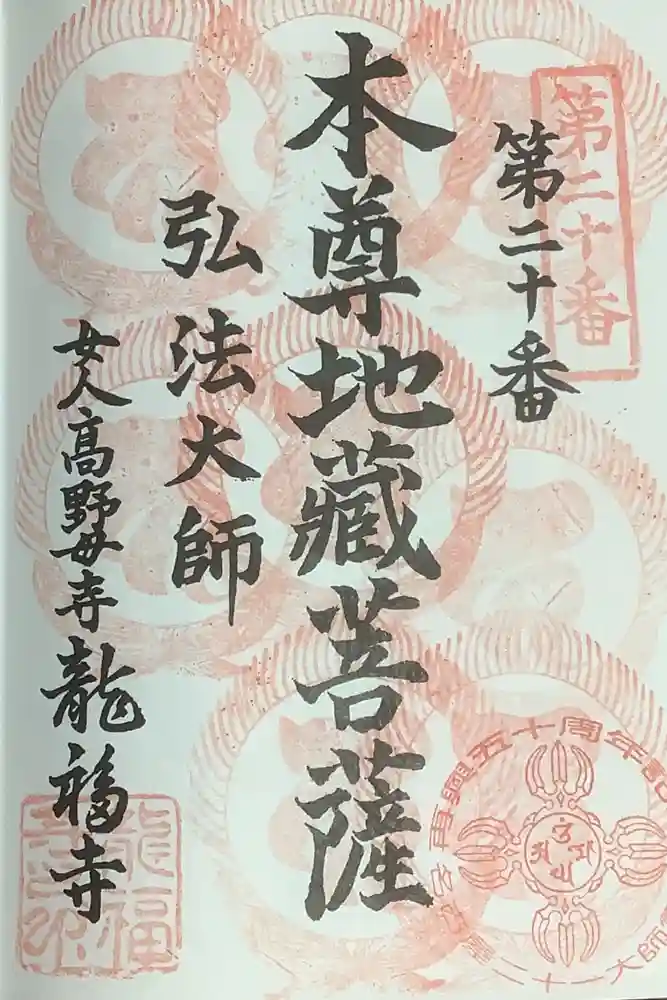 第二十番
第二十番
本尊地藏菩薩
弘法大師
女人高野毋寺龍福寺
再興五十周年記
二十一大師
龍福
寺印